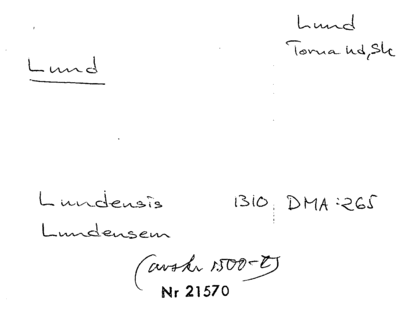 Lund
Torna hd, Sk
Lund
Lundensis 1310 DMA:265
Lundensem
(avskr 1500-t)
Nr 21570